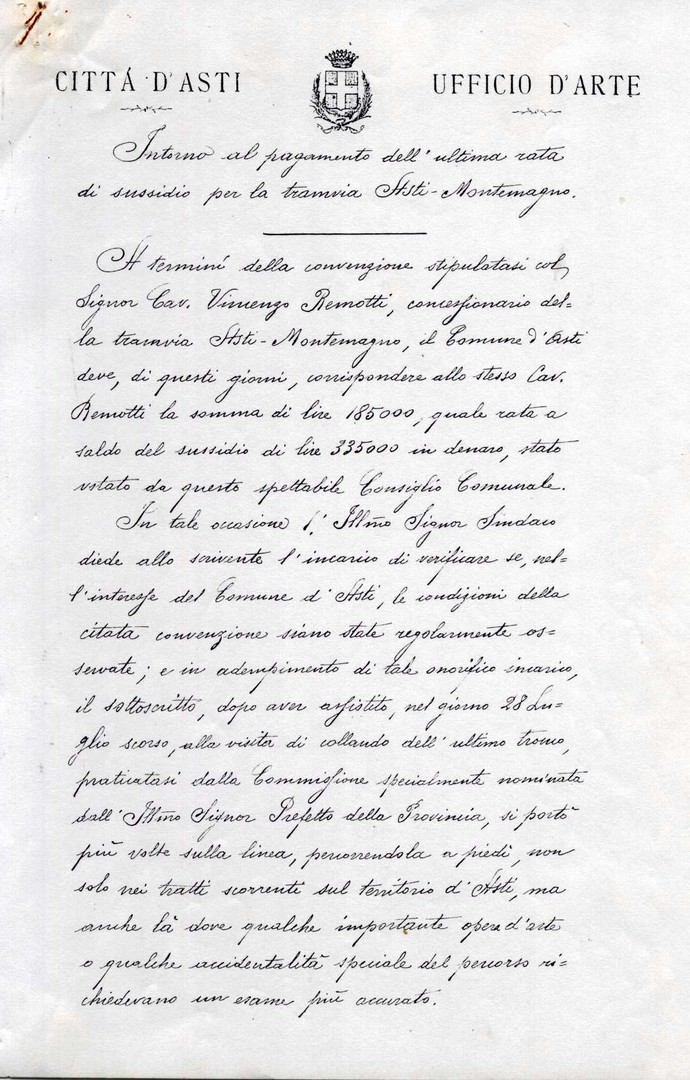 1.
CITTÁ D'ASTI UFFICIO D'ARTE
Intorno al pagamento dell'ultima rata
di sussidio per la tramvia Asti-Montemagno.
A termini della convenzione stipulatasi col
Signor Cav. Vincenzo Remotti, concessionario del=
la tramvia Asti-Montemagno, il Comune d'Asti
deve, di questi giorni, corrispondere allo stesso Cav.
Remotti la somma di lire 185000, quale rata a
saldo del sussidio di lire 335000 in denaro, stato
votato da questo spettabile Consiglio Comunale.
In tale occasione l'Illmo Signor Sindaco
diede allo scrivente l'incarico di verificare se, nel=
l'interesse del Comune d'Asti, le condizioni della
citata convenzione siano state regolarmente os=
servate; e in adempimento di tale onorifico incarico,
il sottoscritto, dopo aver assistito, nel giorno 28 Lu=
glio scorso, alla visita di collaudo dell'ultimo tronco,
praticatasi dalla Commissione specialmente nominata
dall'Illmo Signor Prefetto della Provincia, si portò
più volte sulla linea, percorrendola a piedi, non
solo nei tratti scorrenti sul territorio d'Asti, ma
anche là dove qualche importante opera d'arte
o qualche accidentalità speciale del percorso ri=
chiedevano un esame più accurato.